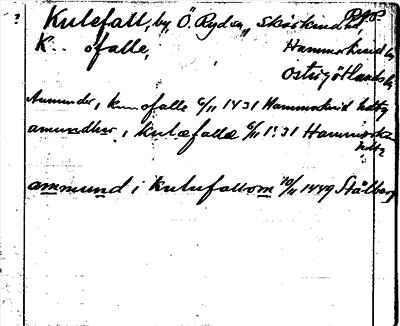 Kulefall, by, Ö. Ryd sn, Skärkind hd,
K.. ofalle, Hammarkind h
Östergötlands l
i kulofalle 6/11 1431 Hammarkind hdtg
amundher i kulæfallæ 6/11 1431 Hammarkz
hdtg
ammund i kulufallom 10/11 1449 Stålberg